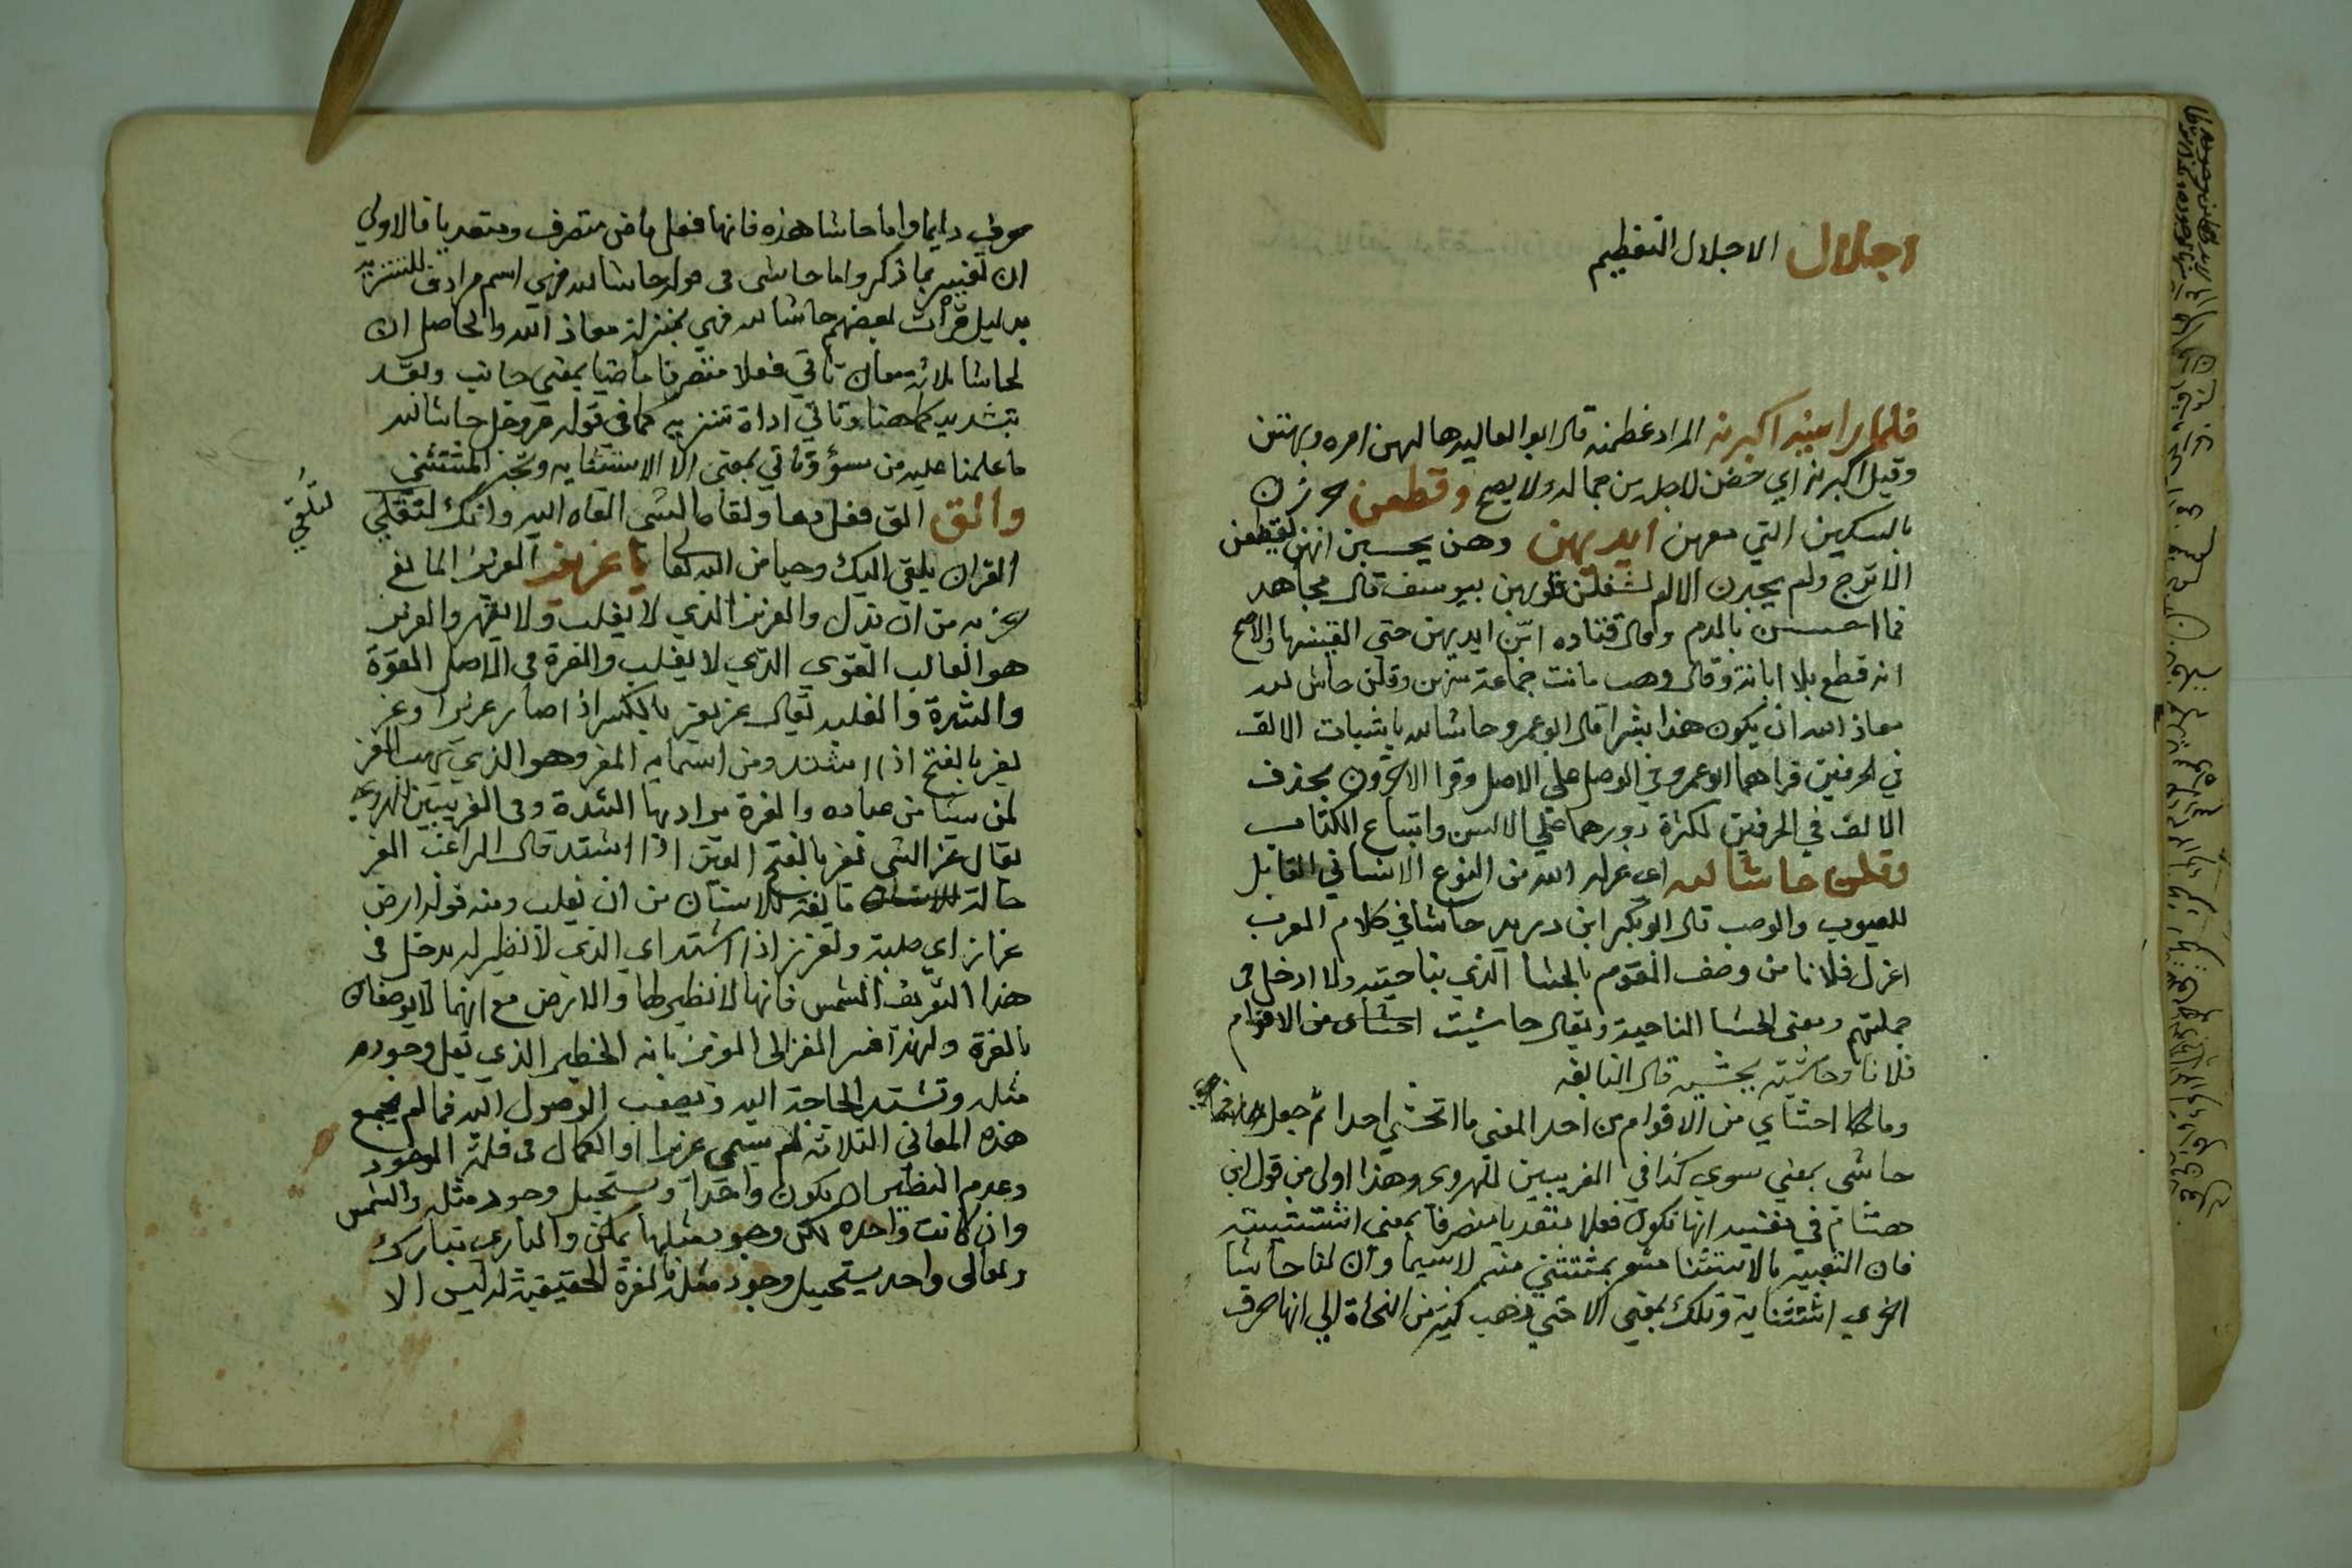 اجلال الاجلال التعظيم
فلما راينه اكبرنه المراد عظمنه قال ابو العاليه هالهن امره وبهتن
وقيل اكبرنه اي حضن لاجله من جماله ولا يصح وقطعن حززن
بالسكين التي معهن ايديهن وهن يحسبن انهن يقطعن
الاترج ولم يجدن الالم لشغل قلوبهن بيوسف قال مجاهد
فما احسسن بالدم وقال قتاده ابّن ايديهن حتي القينها والاصح
انه قطع بلا ابانة وقال وهب ماتت جماعة منهن وقلن حاش لله
معاذ الله ان يكون هذا بشرا قال ابو عمرو حاشا لله باثبات الالف
في الحرفين قراهما ابو عمرو في الوصل علي الاصل وقرا الاخرون بحذف
الالف في الحرفين لكثرة دورهما علي الالسن واتباع الكتاب
وقلن حاشا لله اي عزله الله من النوع الانساني القابل
للعيوب والوصب قال ابو بكر ابن دريد حاشا في كلام العرب
اعزل فلانا من وصف القوم بالحشا الذي بناحيته ولا ادخل في
جملتهم ومعنى الحشا الناحية ويقال حاشيت احشاى من الاقوام
فلانا وحاشيته بحشيه قال النابغه
وما احاشي من الاقوام من احد المعني ما اتحشي احدا ثم جعل
حاشى بمعني سوي كذا في الغريبين للهروي وهذا اولى من قول ابن
هشام في مغنيه انها تكون فعلا متعديا متصرفا بمعنى استثنيته
فان التعبير بالاستثنا مشعر بمستثني منه لاسيما وان لنا حاشا
اخري استثنائية وتلك بمعني الا حتي ذهب كثير من النحاة الي انها حرف
حرف دايما واما حاشا هذه فانها فعل ماض متصرف ومتعديا فالاولي
ان تفسر بما ذكر واما حاشى في قوله حاشا لله فهي اسم مرادف للتنزيه
بدليل قرأت بعضهم حاشا لله فهي بمنزلة معاذ الله والحاصل ان
لحاشا ثلاثة معان تاتي فعلا متصرفا ماضيا بمعني جانب وبعّد
بتشديد كما هنا وتاتي اداة تنزيه كما في قوله عز وجل حاشا لله
ما علمنا عليه من سوء وتاتي بمعني الا الاستثنايه وتجر المستثني
والق الق فعل دعا ولقاه الشي القاه اليه وانك لتلقي
لتُلقّي
القران يلقي اليك وحيا من الله لقا يا عزيز العزيز المانع
حزبه من ان تذل والعزيز الذي لا يغلب ولا يقهر والعزيز
هو الغالب القوي الذي لا يغلب والعزة في الاصل القوة
والشدة والغلبه يقال عز يعز بالكسر اذا صار عزيزا وعز
يعز بالفتح اذا اشتد ومن اسمايه المعز وهو الذي يهب العز
لمن يشا من عباده والعزة يراد بها الشدة وفي الغريبين للهروي
يقال عز الشي يعز بالفتح العين اذا اشتد قال الراغب العز
حالة مانعة للانسان من ان يغلب ومنه قوله ارض
عزاز اي صلبة وتعزز اذا اشتد اي الذي لا نظير له يدخل في
هذا التعريف الشمس فانها لا نظير لها والارض مع انهما لا يوصفان
بالعزة ولهذا فسر الغزالى العزيز بانه الخطير الذي يقل وجوده
مثله وتشتد الحاجة اليه ويصعب الوصول اليه فما لم يجمع
هذه المعاني الثلاثة لم يسمي عزيزا والكمال في قلة الوجود
وعدم النظير ان يكون واحدا ويستحيل وجود مثله والشمس
وان كانت واحده لكن وجود مثلها يمكن والباري تبارك
وتعالى واحد يستحيل وجود مثله فالعزة الحقيقية له ليس الا